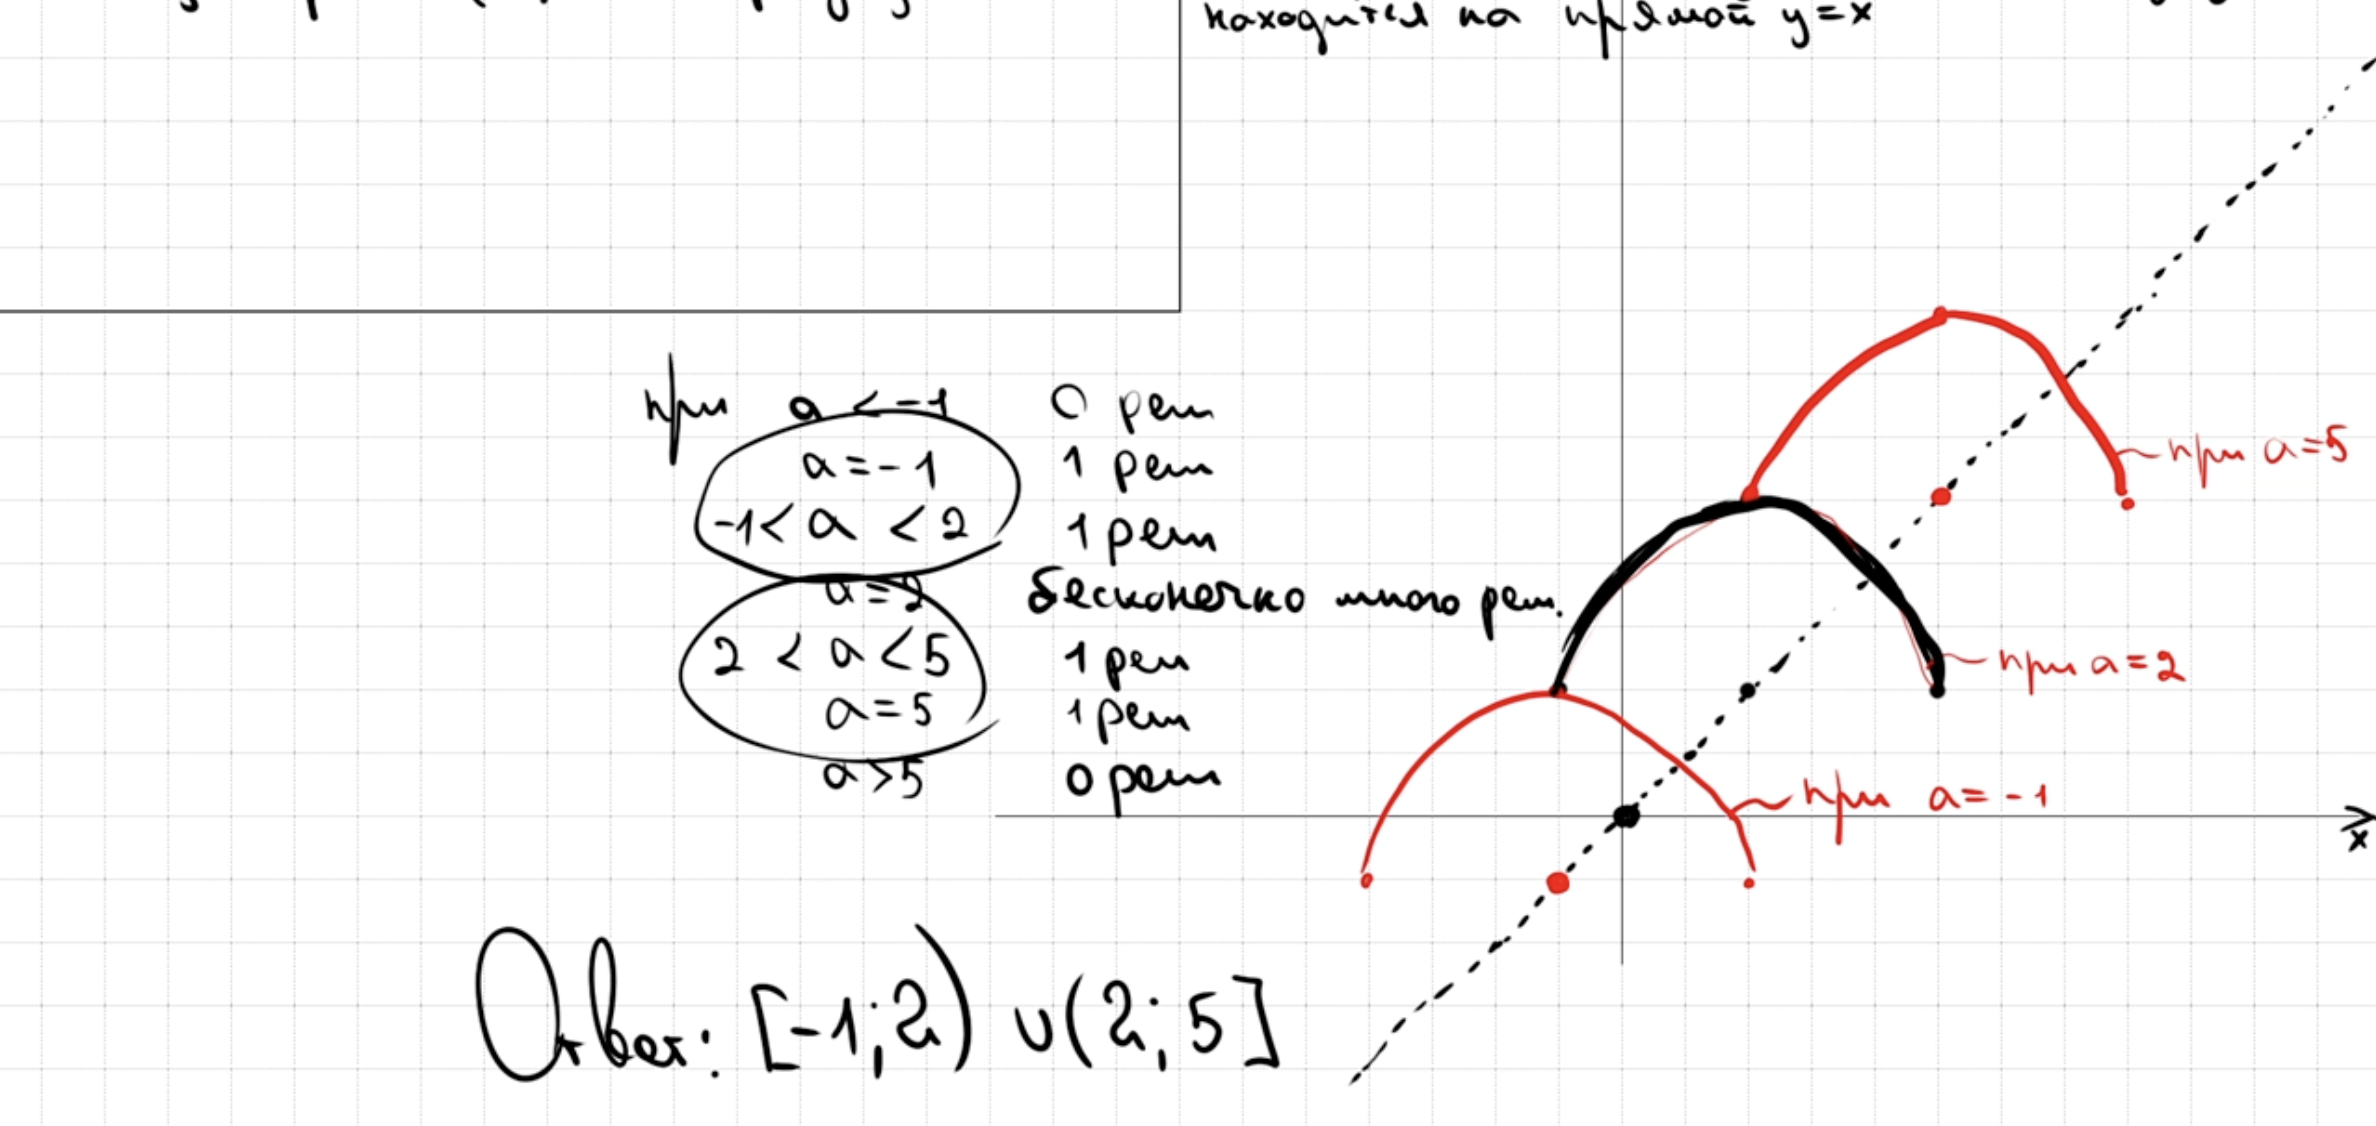 находится на прямой y=x
при a < -1 0 реш
a = -1 1 реш
-1 < a < 2 1 реш
a = 2 бесконечно много реш.
2 < a < 5 1 реш
a = 5 1 реш
a > 5 0 реш
при a = 5
при a = 2
при a = -1
x
Ответ: [-1; 2) ∪ (2; 5]